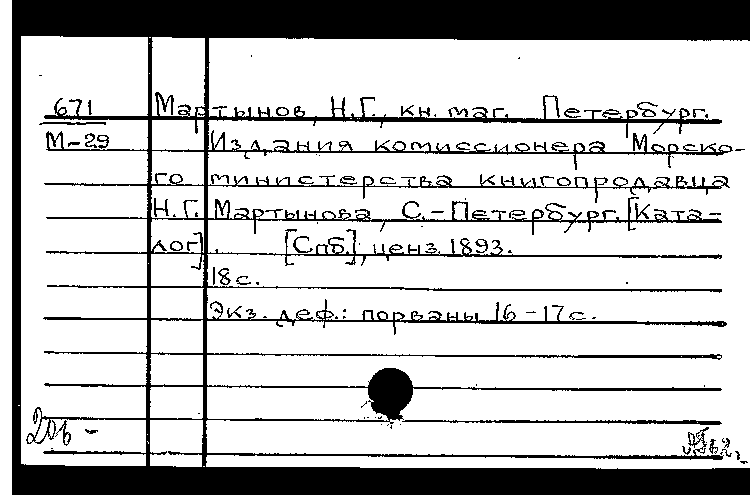 671 Мартынов, Н.Г., кн. маг. Петербург.
М-29 Издания комиссионера Морско-
го министерства книгопродавца
Н.Г. Мартынова, С.-Петербург. [Ката-
лог]. [Спб.], ценз. 1893.
18 с.
Экз. деф.: порваны 16-17 с.